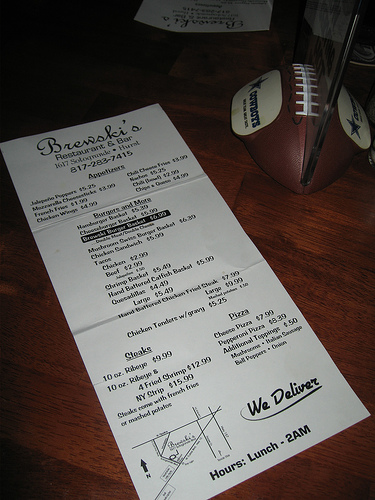 Brewski's
Restaurant & Bar
1617 Sotogrande • Hurst
817-283-7415
Appetizers
Jalapeno Poppers $5.25
Mozzarella Cheesesticks $3.99
French Fries $1.99
Chicken Wings $4.99
Chili Cheese Fries $3.99
Nachos $5.25
Chili (bowl) $2.99
Chips & Queso $4.99
Burgers and More
Hamburger Basket $5.39
Cheeseburger Basket $5.99
Brewski Burger Basket $6.99
Double Meat/Double Cheese
Mushroom Swiss Burger Basket $6.39
Chicken Sandwich $5.99
Tacos
Chicken $2.99
Beef $2.99
Shrimp Basket $5.49
Hand Battered Catfish Basket $5.99
Quesadillas $4.49
Large $5.49
Hand Battered Chicken Fried Steak $7.99
Large $9.99
Chicken Tenders w/gravy $5.25
Steaks
10 oz. Ribeye $9.99
10 oz. Ribeye &
4 Fried Shrimp $12.99
NY Strip $15.99
Steaks come with french fries
or mashed potatos
Pizza
Cheese Pizza $7.99
Pepperoni Pizza $8.39
Additional Toppings $.50
Mushrooms • Italian Sausage
Bell Peppers • Onion
We Deliver
Brewski's
N
Hours: Lunch - 2AM
Brewski's
Restaurant & Bar
COWBOYS